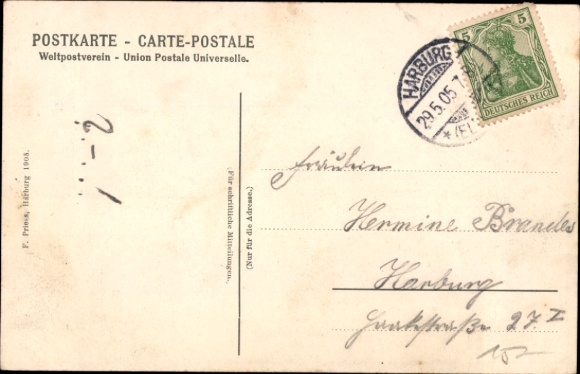 POSTKARTE - CARTE-POSTALE
Weltpostverein - Union Postale Universelle.
5 5
DEUTSCHES REICH
HARBURG
29.5.05. 7-8
*(EL
1-2
F. Priess, Harburg 1903.
(Für schriftliche Mitteilungen.)
(Nur für die Adresse.)
Fräulein
Hermine Brandes
Harburg
Haakestraße 27 I
152